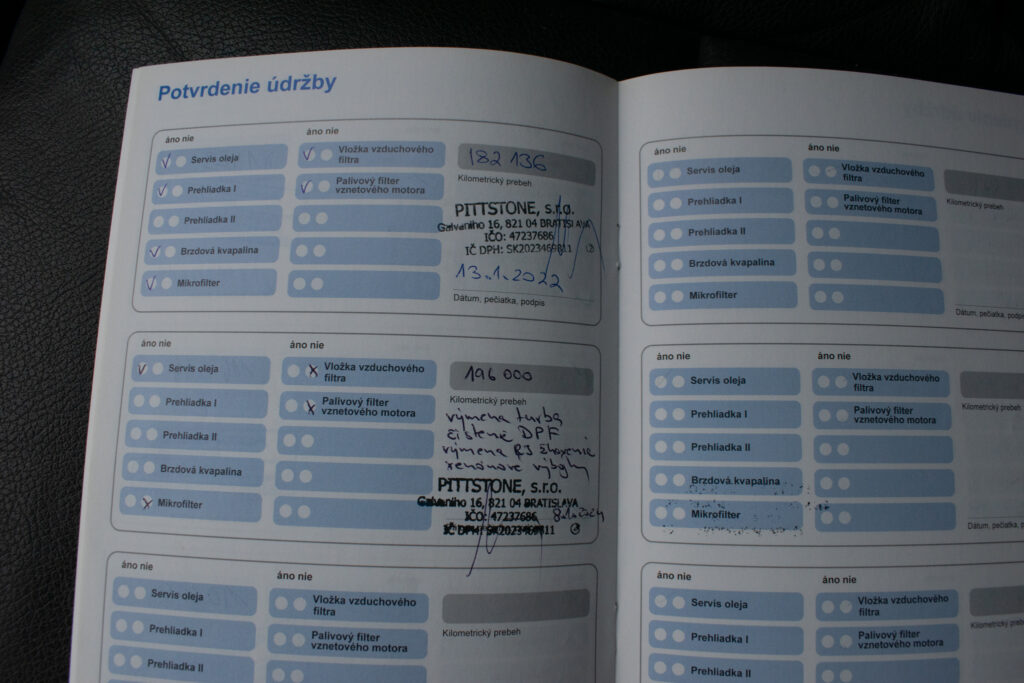 Potvrdenie údržby
áno nie
áno nie
Servis oleja
Vložka vzduchového
filtra
182 136
Kilometrický prebeh
Prehliadka I
Palivový filter
vznetového motora
Prehliadka II
PITTSTONE, s.r.o.
Galvaniho 16, 821 04 BRATISLAVA
IČO: 47237686
IČ DPH: SK2023469811
Brzdová kvapalina
13.1.2022
Mikrofilter
Dátum, pečiatka, podpis
áno nie
áno nie
Servis oleja
Vložka vzduchového
filtra
196 000
Kilometrický prebeh
Prehliadka I
Palivový filter
vznetového motora
výmena turba
čistené DPF
Prehliadka II
výmena
xenónové výbojky
Brzdová kvapalina
PITTSTONE, s.r.o.
Galvaniho 16, 821 04 BRATISLAVA
IČO: 47237686
IČ DPH: SK2023469811
Mikrofilter
áno nie
áno nie
Servis oleja
Vložka vzduchového
filtra
Kilometrický prebeh
Prehliadka I
Palivový filter
vznetového motora
Prehliadka II
áno nie
áno nie
Servis oleja
Vložka vzduchového
filtra
Kilometrický prebeh
Prehliadka I
Palivový filter
vznetového motora
Prehliadka II
Brzdová kvapalina
Mikrofilter
Dátum, pečiatka, podpis
áno nie
áno nie
Servis oleja
Vložka vzduchového
filtra
Kilometrický prebeh
Prehliadka I
Palivový filter
vznetového motora
Prehliadka II
Brzdová kvapalina
Mikrofilter
Dátum, pečiatka, podpis
áno nie
áno nie
Servis oleja
Vložka vzduchového
filtra
Kilometrický
Prehliadka I
Palivový filter
vznetového motora
Prehliadka II